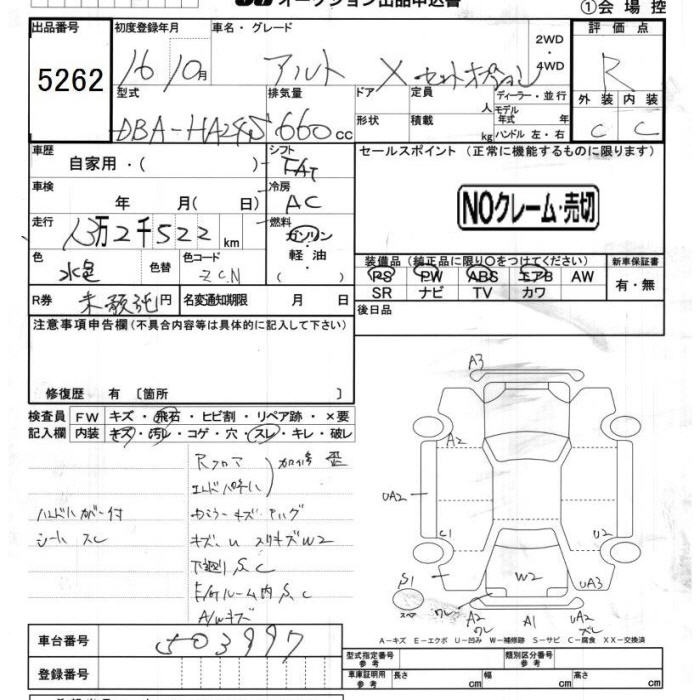 オークション出品申込書 ①会場控
出品番号 初度登録年月 車名・グレード 2WD・4WD 評価点
5262 16 10月 アルト X セットオプション R
型式 排気量 ドア 定員 人 ディーラー・並行 外装 内装
DBA-HA24S 660cc 形状 積載 kg モデル年式 年 ハンドル 左・右 C C
車歴 シフト セールスポイント (正常に機能するものに限ります)
自家用・( ) FAT
車検 冷房
年 月( 日) AC NOクレーム・売切
走行 燃料
13万2千522km ガソリン・軽油・( )
色 色替 色コード 装備品 (純正品に限り○をつけてください) 新車保証書
水色 ZCN PS PW ABS エアB AW 有・無
SR ナビ TV カワ
R券 未預託円 名変通知期限 月 日 後日品
注意事項申告欄(不具合内容等は具体的に記入して下さい)
修復歴 有 〔箇所 〕
検査員 FW キズ・飛石・ヒビ割・リペア跡・×要
記入欄 内装 キズ・汚レ・コゲ・穴・スレ・キレ・破レ
Rフロア
エンドパネル 加修歴
ハンドルカバー付
シートスレ
下廻りS、C
E/gルーム内S、C
A/Wキズ
A3
A2
UA2
C1 U2
S1 W2 UA3
A2 A1 UA2
ワレ ズレ
A-キズ E-エクボ U-凹み W-補修跡 S-サビ C-腐食 XX-交換済
車台番号 503997
型式指定番号 参考 類別区分番号 参考
登録番号 車庫証明用 参考 長さ cm 幅 cm 高さ cm